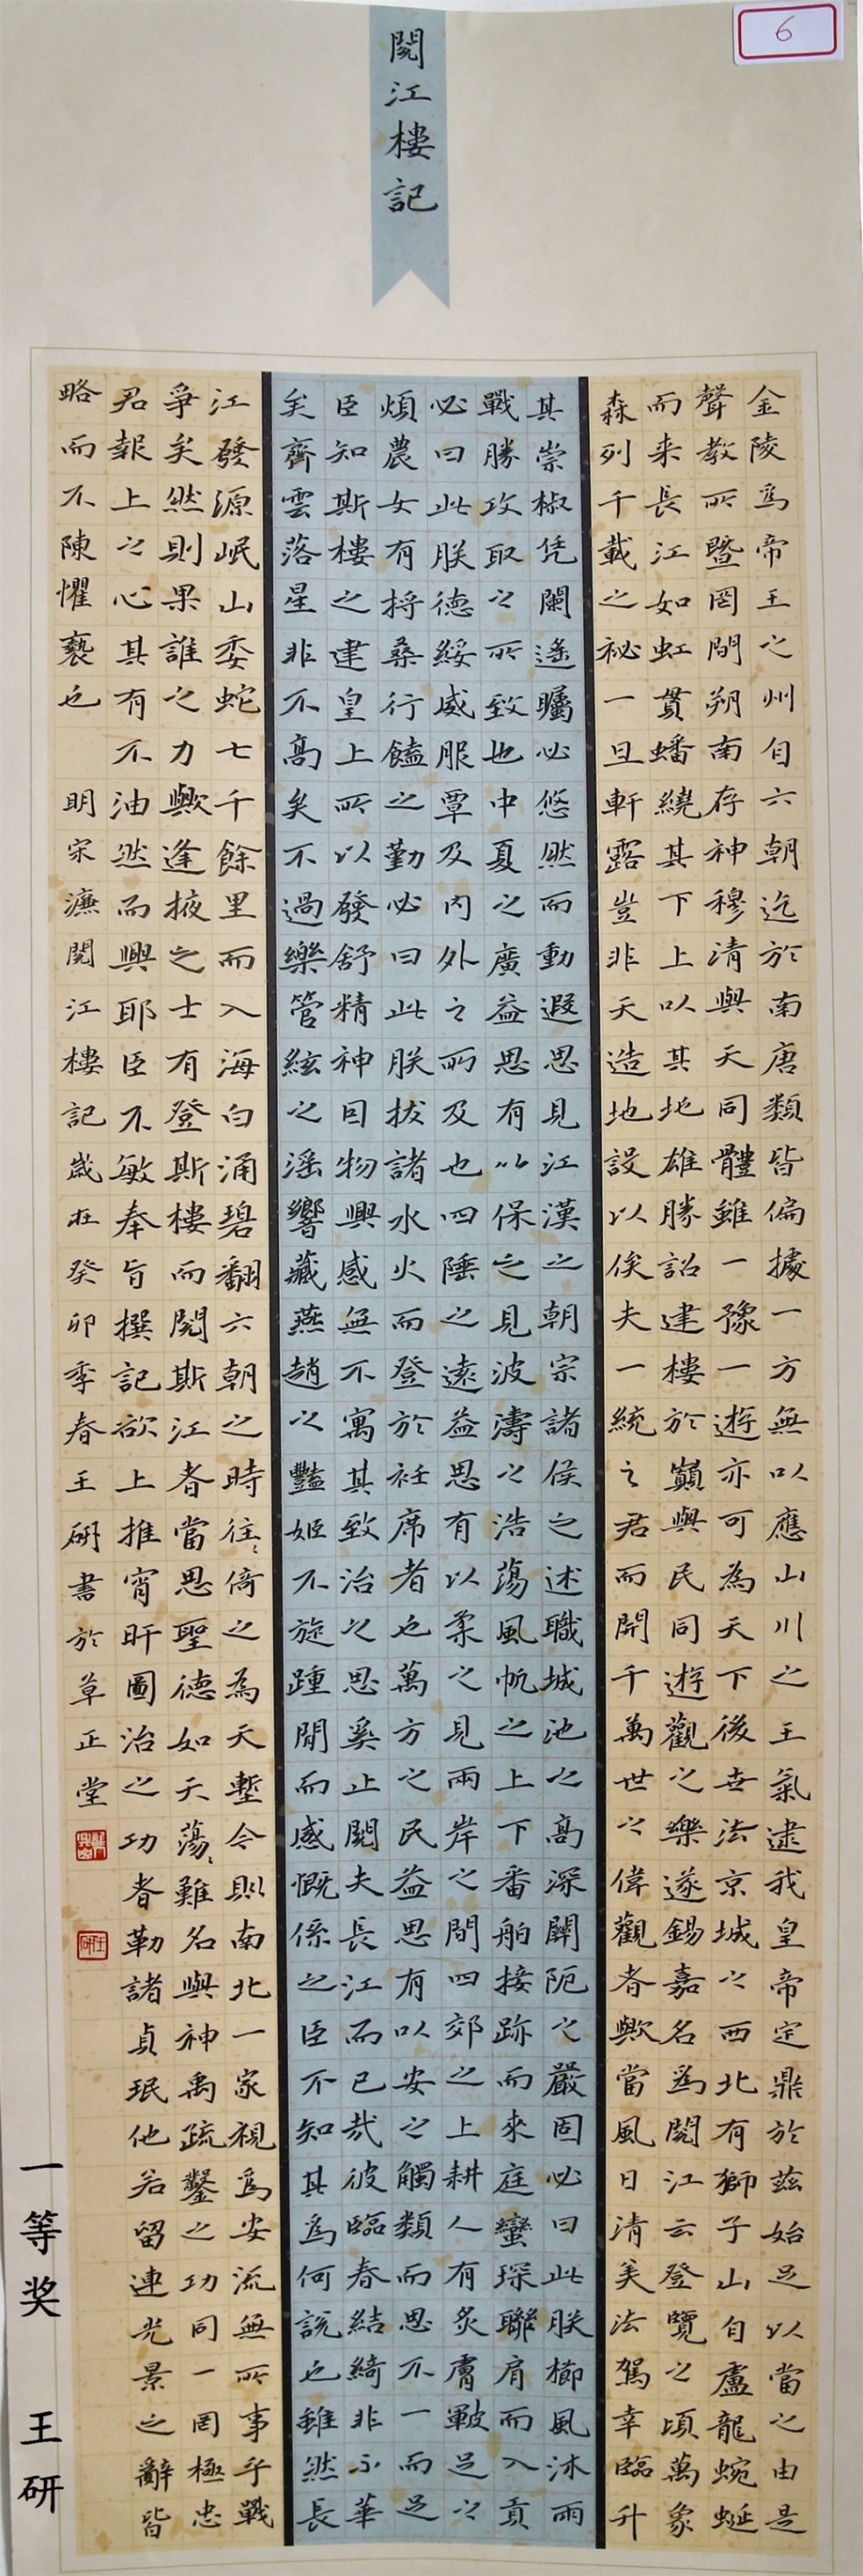 6
閱江樓記
金陵為帝王之州自六朝迄於南唐類皆偏據一方無以應山川之王氣逮我皇帝定鼎於茲始足以當之由是
聲教所暨罔間朔南存神穆清與天同體雖一豫一遊亦可為天下後世法京城之西北有獅子山自盧龍蜿蜒
而来長江如虹貫蟠繞其下上以其地雄勝詔建樓於巔與民同遊觀之樂遂錫嘉名為閱江云登覽之頃萬象
森列千載之祕一旦軒露豈非天造地設以俟夫一統之君而開千萬世之偉觀者歟當風日清美法駕幸臨升
其崇椒凭闌遙矚必悠然而動遐思見江漢之朝宗諸侯之述職城池之高深關阨之嚴固必曰此朕櫛風沐雨
戰勝攻取之所致也中夏之廣益思有以保之見波濤之浩蕩風帆之上下番舶接跡而來庭蠻琛聯肩而入貢
必曰此朕德綏威服覃及内外之所及也四陲之遠益思有以柔之見兩岸之間四郊之上耕人有炙膚皸足之
煩農女有捋桑行饁之勤必曰此朕拔諸水火而登於衽席者也萬方之民益思有以安之觸類而思不一而足
臣知斯樓之建皇上所以發舒精神因物興感無不寓其致治之思奚止閱夫長江而已哉彼臨春結綺非不華
矣齊雲落星非不高矣不過樂管絃之淫響藏燕趙之豔姬不旋踵間而感慨係之臣不知其為何說也雖然長
江發源岷山委蛇七千餘里而入海白涌碧翻六朝之時往々倚之為天塹今則南北一家視為安流無所事乎戰
爭矣然則果誰之力歟逢掖之士有登斯樓而閱斯江者當思聖德如天蕩々難名與神禹疏鑿之功同一罔極忠
君報上之心其有不油然而興耶臣不敏奉旨撰記欲上推宵旰圖治之功者勒諸貞珉他若留連光景之辭皆
略而不陳懼褻也 明宋濂閱江樓記歲在癸卯季春王研書於草正堂
一等奖 王研